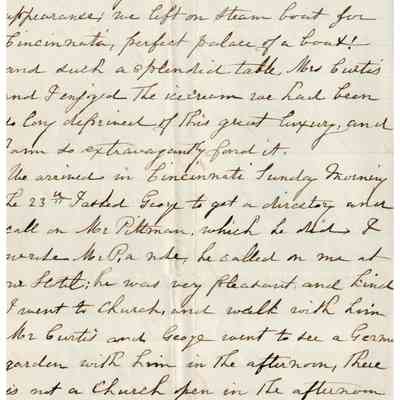 appearance; we left on steam boat for
Cincinnata, perfect palace of a boat!
and such a splendid table, Mrs Curtis
and I enjoyed the icecream we had been
so long deprived of this great luxury, and
I am so extravagantly fond it.
We arrived in Cincinnati Sunday Morning
the 23rd I asked George to get a directory and
call on Mr Pittman, which he did I
wrote Mr P, a note, he called on me at
Hotel; he was very pleasant and kind
I went to Church, and walk with him
Mr Curtis and George went to see a German
garden with him in the afternoon, There
is not a Church open in the afternoon